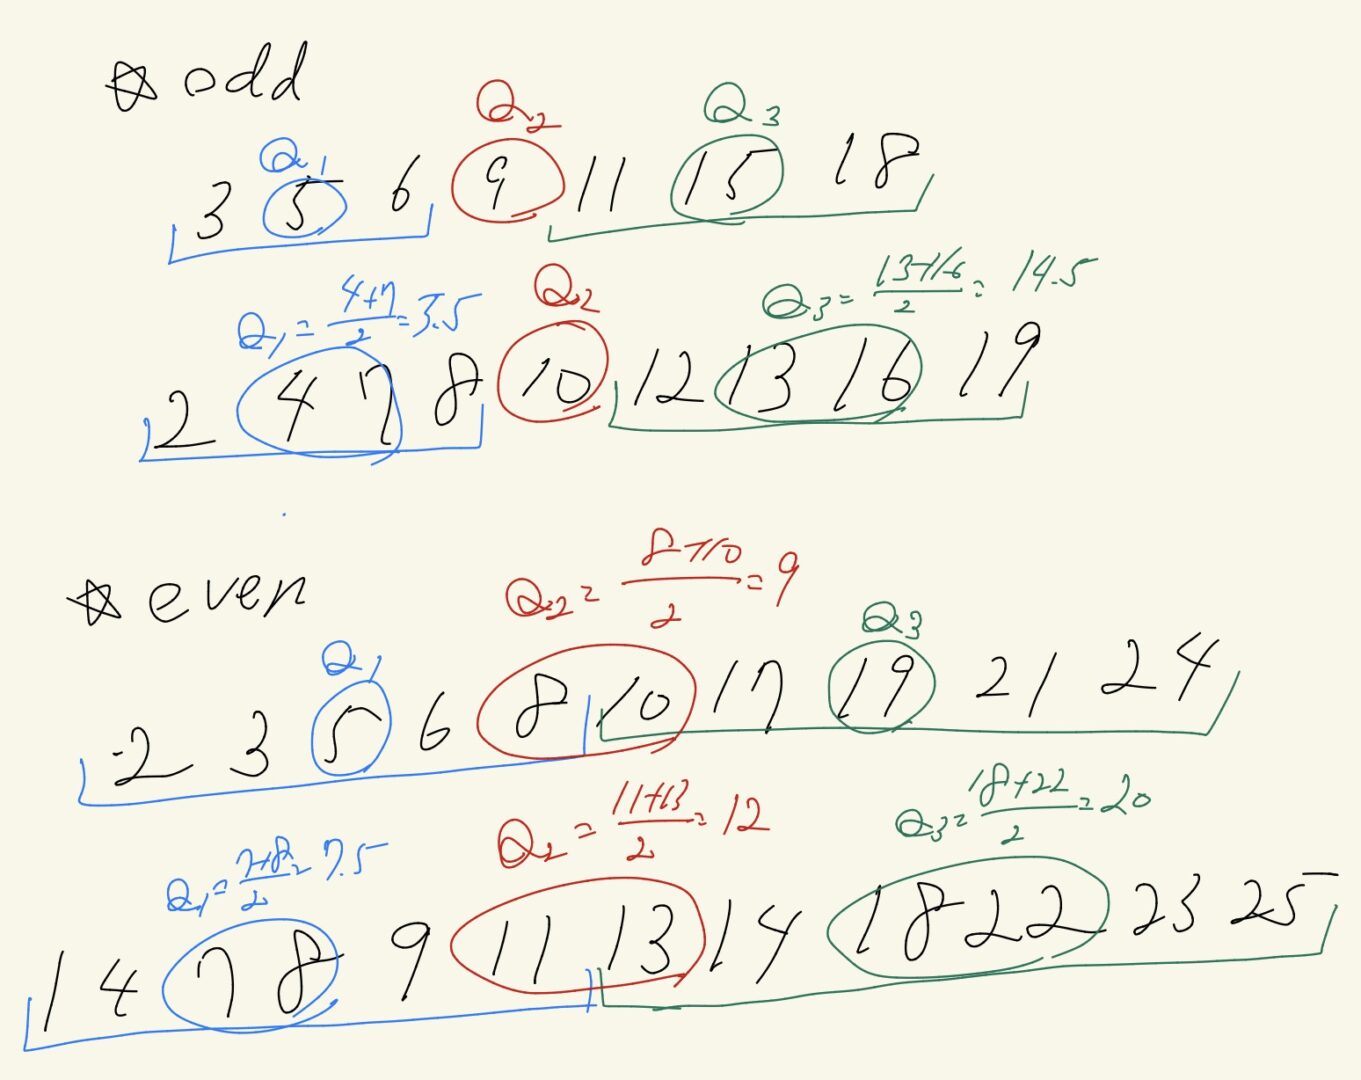 ☆ odd
Q₁ Q₂ Q₃
3 5 6 9 11 15 18
Q₁ = (4+7)/2 = 3.5 Q₂ Q₃ = (13+16)/2 = 14.5
2 4 7 8 10 12 13 16 19
☆ even
Q₂ = (8+10)/2 = 9
Q₁ Q₃
-2 3 5 6 8 10 17 19 21 24
Q₁ = (7+8)/2 = 7.5 Q₂ = (11+13)/2 = 12 Q₃ = (18+22)/2 = 20
1 4 7 8 9 11 13 14 18 22 23 25